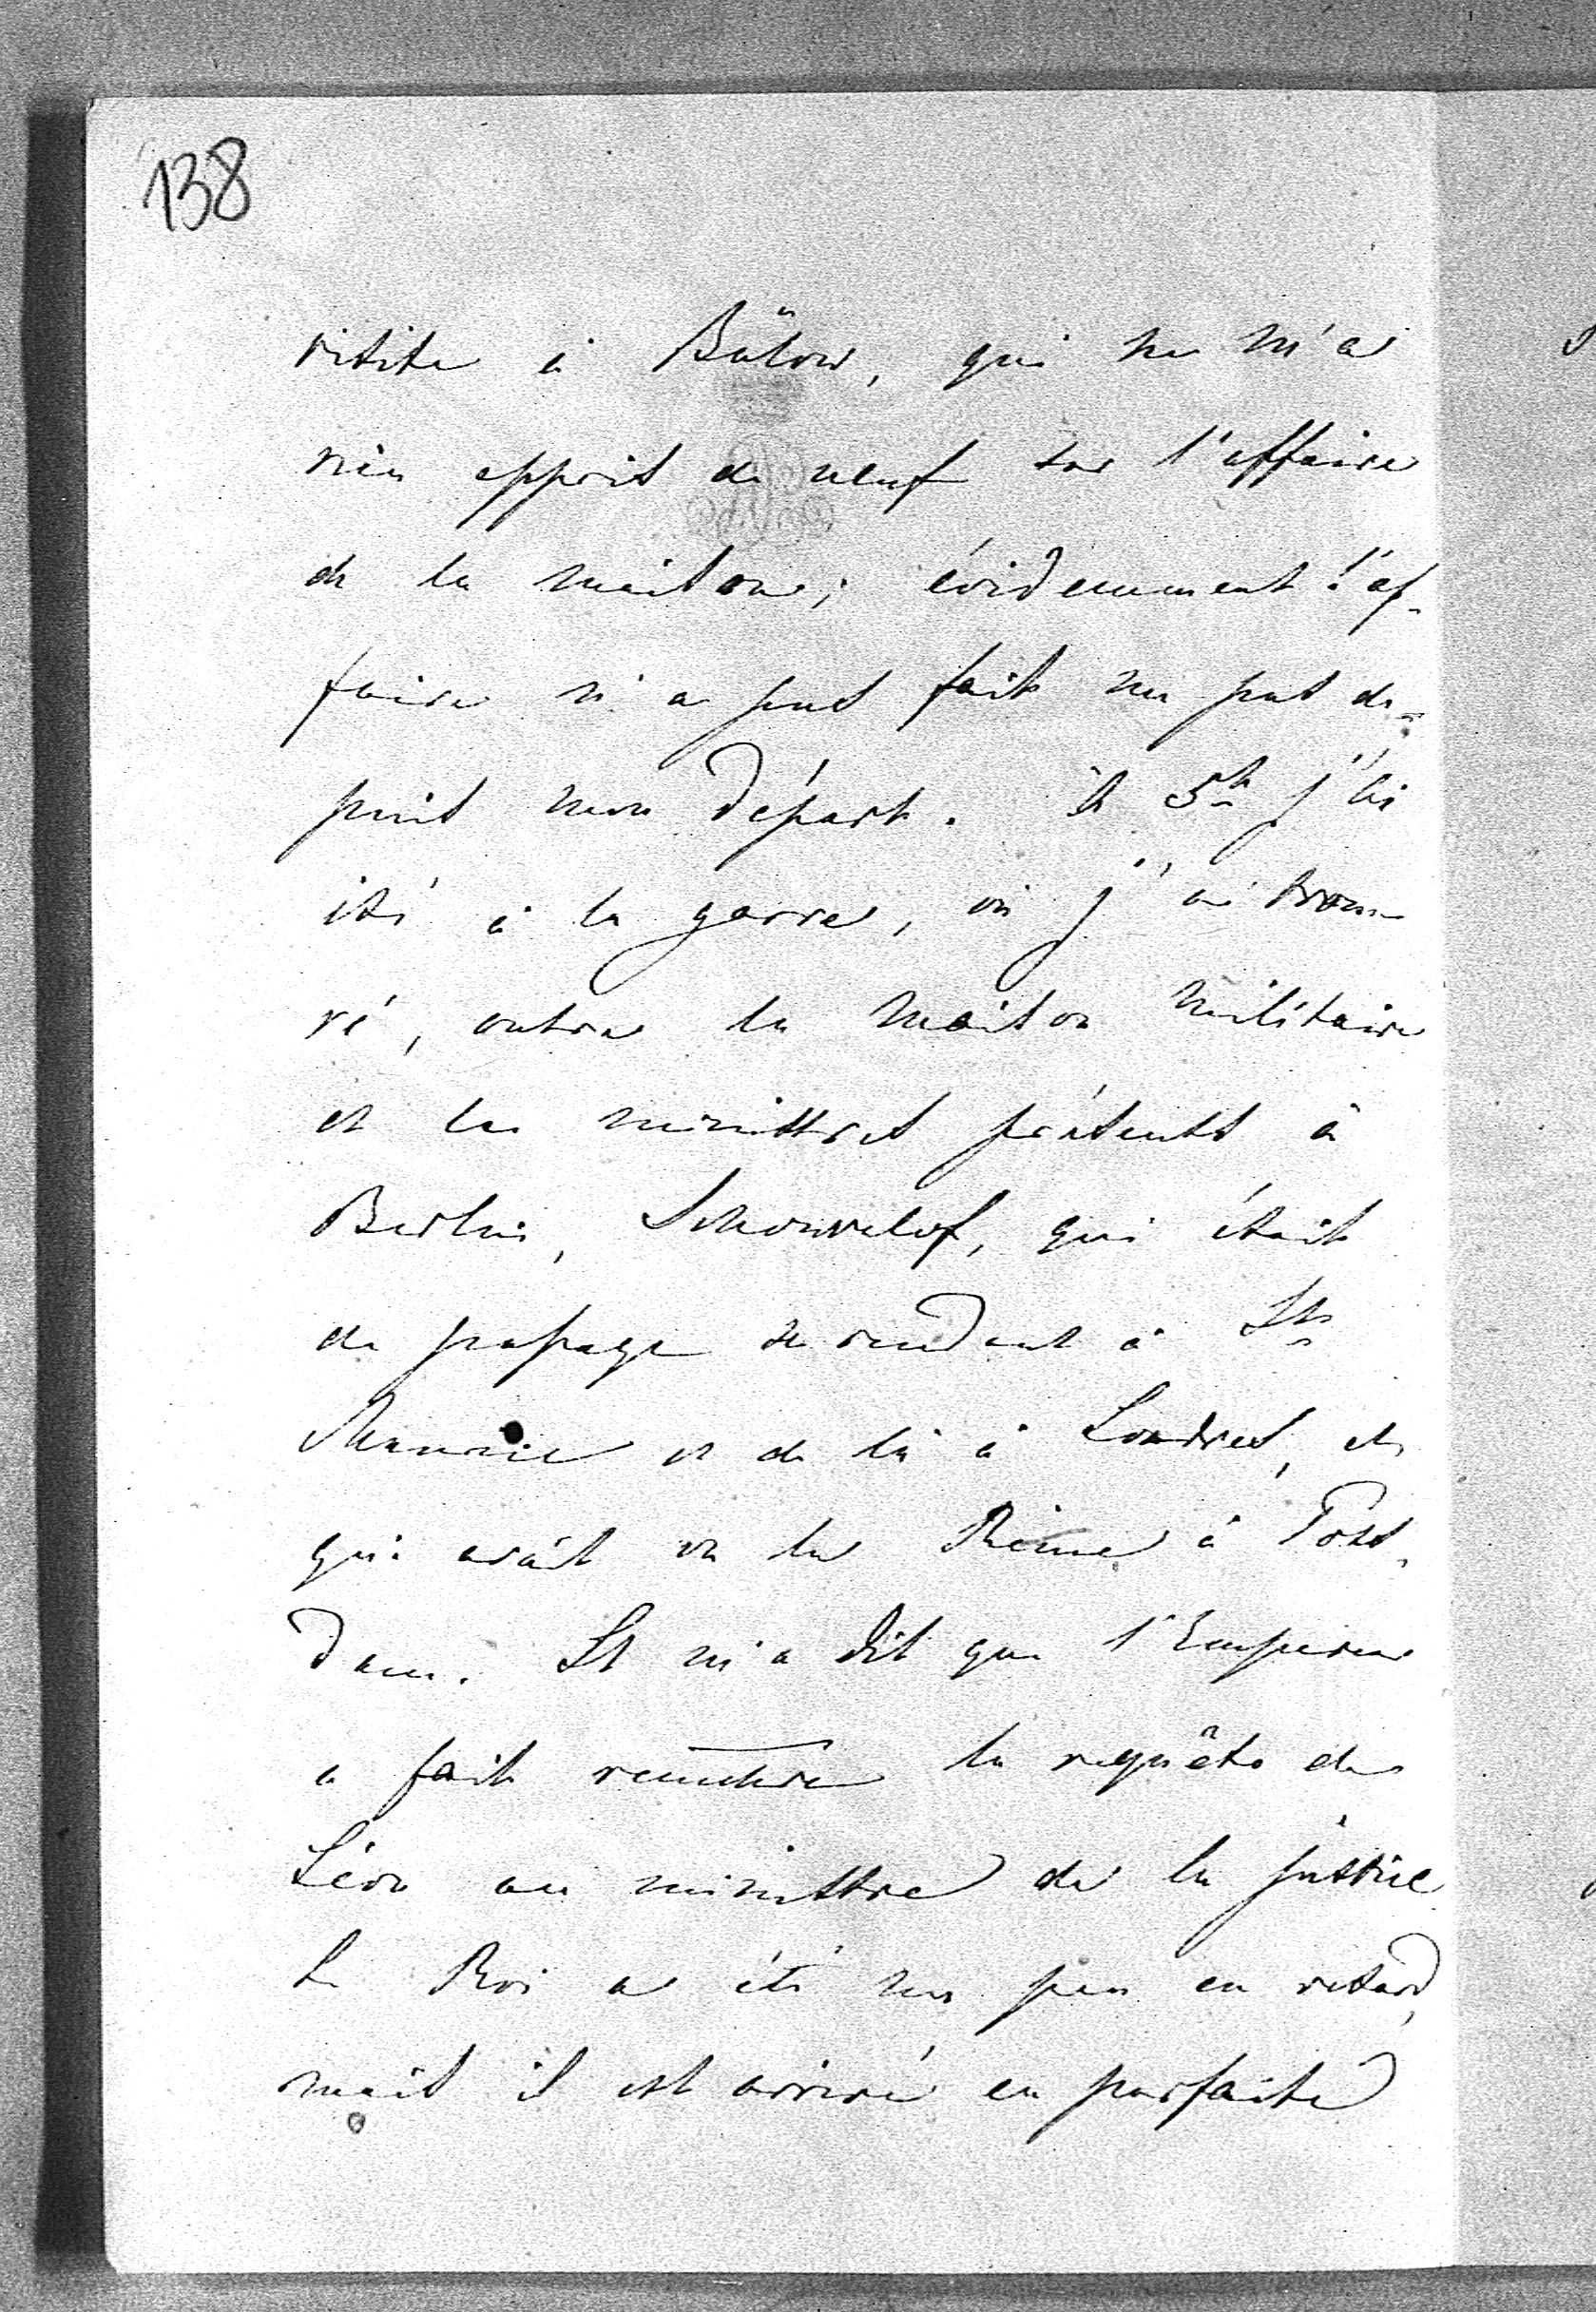 138
visite à Bülow, qui ne m'a
rien appris de neuf sur l'affaire
de la maison; évidemment l'af-
faire n'a pas fait un pas de-
puis mon départ. À 5h j'ai
été à la garre, où j'ai trou-
vé, outre la maison militaire
et les ministres présents à
Berlin, Schouvalof, qui était
de passage se rendant à Ste
Maurice et de là à Londres, et
qui avait vu la Reine à Pots-
dam. Il m'a dit que l'Empereur
a fait remettre la requête de
Léon au ministre de la justice
Le Roi a été un peu en retard,
mais il est arrivé en parfaite